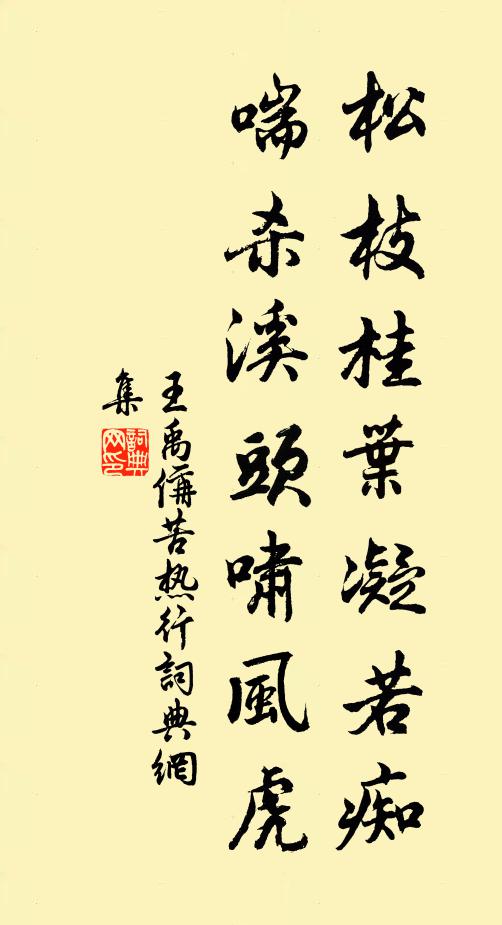 松枝桂葉凝若痴
喘杀溪頭嘯風虎
王禹偁苦热行詞典網
集
詞典网印